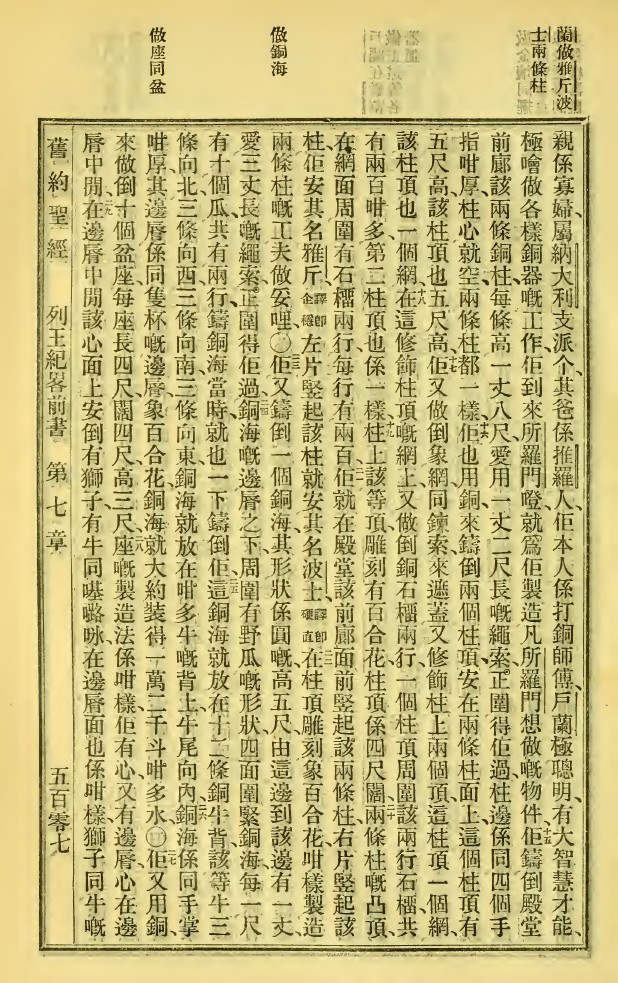 蘭做雅斤波
士兩條柱
做銅海
做座同盆
親係寡婦屬納大利支派个其爸係推羅人佢本人係打銅師傅戶蘭極聰明有大智慧才能
極噲做各樣銅器嘅工作佢到來所羅門嶝就爲佢製造凡所羅門想做嘅物件十五佢鑄倒殿堂
前廊該兩條銅柱每條高一丈八尺愛用一丈二尺長嘅繩索正圍得佢過柱邊係同四個手
指咁厚柱心就空兩條柱都一樣十六佢也用銅來鑄倒兩個柱頂安在兩條柱面上這個柱頂有
五尺高該柱頂也五尺高十七佢又做倒象網同鍊索來遮蓋又修飾柱上兩個頂這柱頂一個網
該柱頂也一個網十八在這修飾柱頂嘅網上又做倒銅石榴兩行一個柱頂周圍該兩行石榴共
有兩百咁多第二柱頂也係一樣十九柱上該等頂雕刻有百合花柱頂係四尺闊二十兩條柱嘅凸頂
在網面周圍有石榴兩行每行有兩百二一佢就在殿堂該前廊面前竪起該兩條柱右片竪起該
柱佢安其名雅斤譯即企穩左片竪起該柱就安其名波士譯即硬直二二在柱頂雕刻象百合花咁樣製造
兩條柱嘅工夫做妥哩〇二三佢又鑄倒一個銅海其形狀係圓嘅高五尺由這邊到該邊有一丈
愛三丈長嘅繩索正圍得佢過二四銅海嘅邊脣之下周圍有野瓜嘅形狀四面圍緊銅海每一尺
有十個瓜共有兩行鑄銅海當時就也一下鑄倒佢二五這銅海就放在十二條銅牛背該等牛三
條向北三條向西三條向南三條向東銅海就放在咁多牛嘅背上牛尾向內二六銅海係同手掌
咁厚其邊脣係同隻杯嘅邊脣象百合花銅海就大約裝得一萬二千斗咁多水〇二七佢又用銅
來做倒十個盆座每座長四尺闊四尺高三尺二八座嘅製造法係咁樣佢有心又有邊脣心在邊
脣中間二九在邊脣中間該心面上安倒有獅子有牛同𠸄嚕咏在邊脣面也係咁樣獅子同牛嘅
舊約聖經 列王紀畧前書 第七章 五百零七